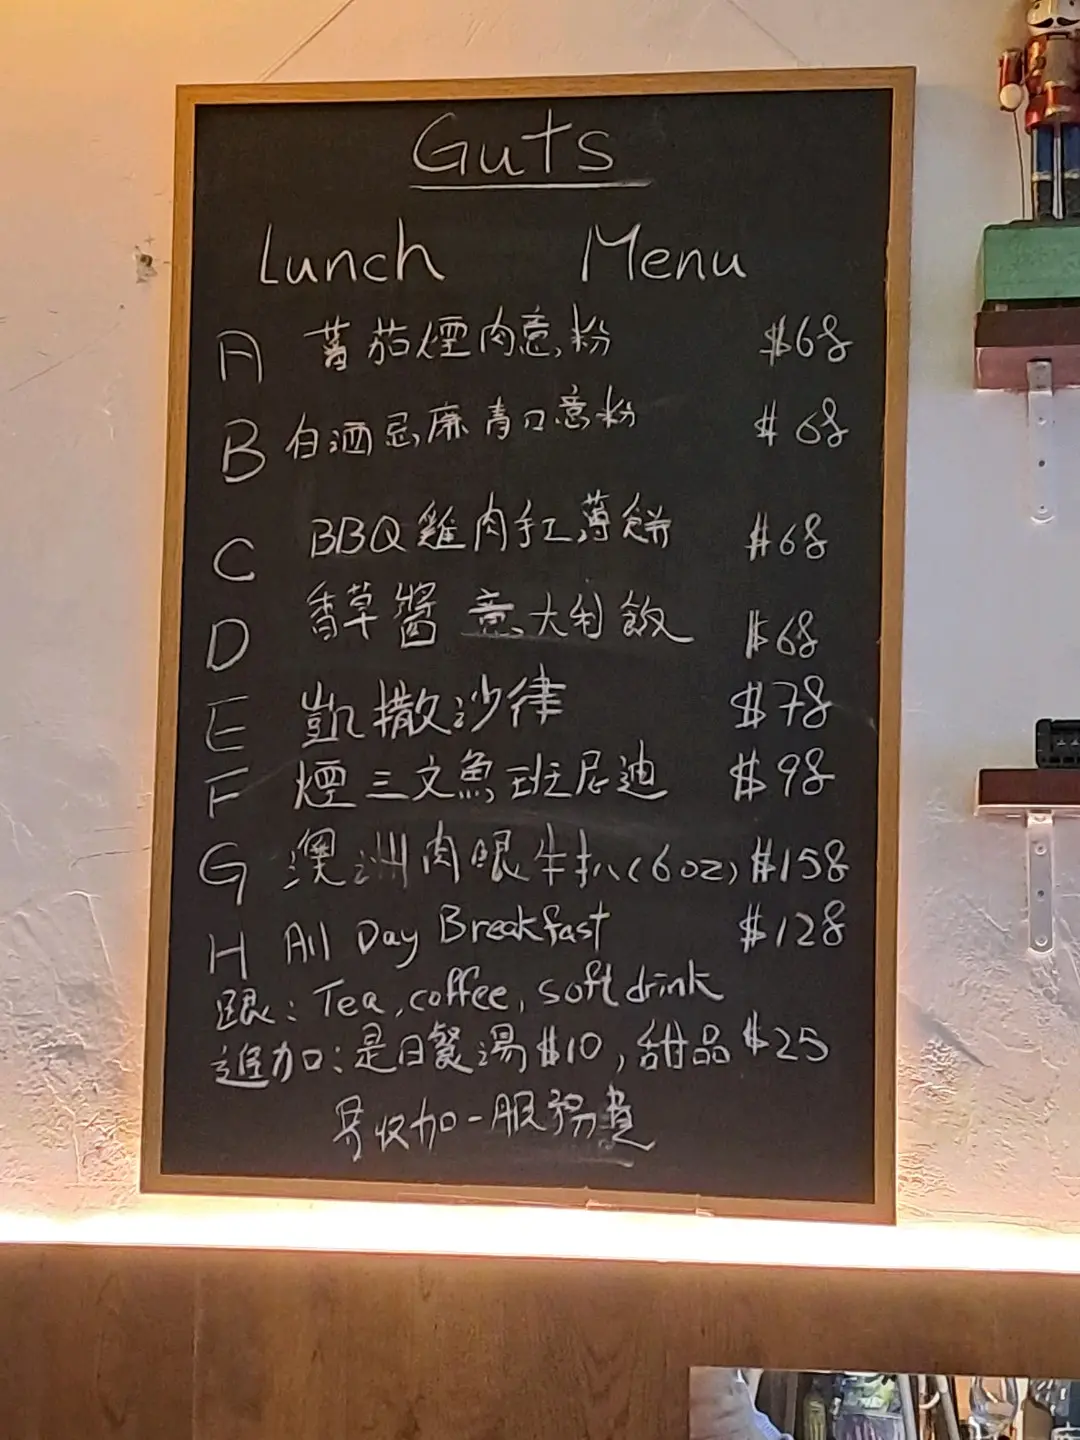 Guts
Lunch Menu
A 蕃茄煙肉意粉 $68
B 白酒忌廉青口意粉 $68
C BBQ雞肉手工薄餅 $68
D 香草醬意大利飯 $68
E 凱撒沙律 $78
F 煙三文魚班尼迪 $98
G 澳洲肉眼牛扒(6oz) $158
H All Day Breakfast $128
跟: Tea, coffee, soft drink
進加: 是日餐湯$10, 甜品$25
另收加一服務費